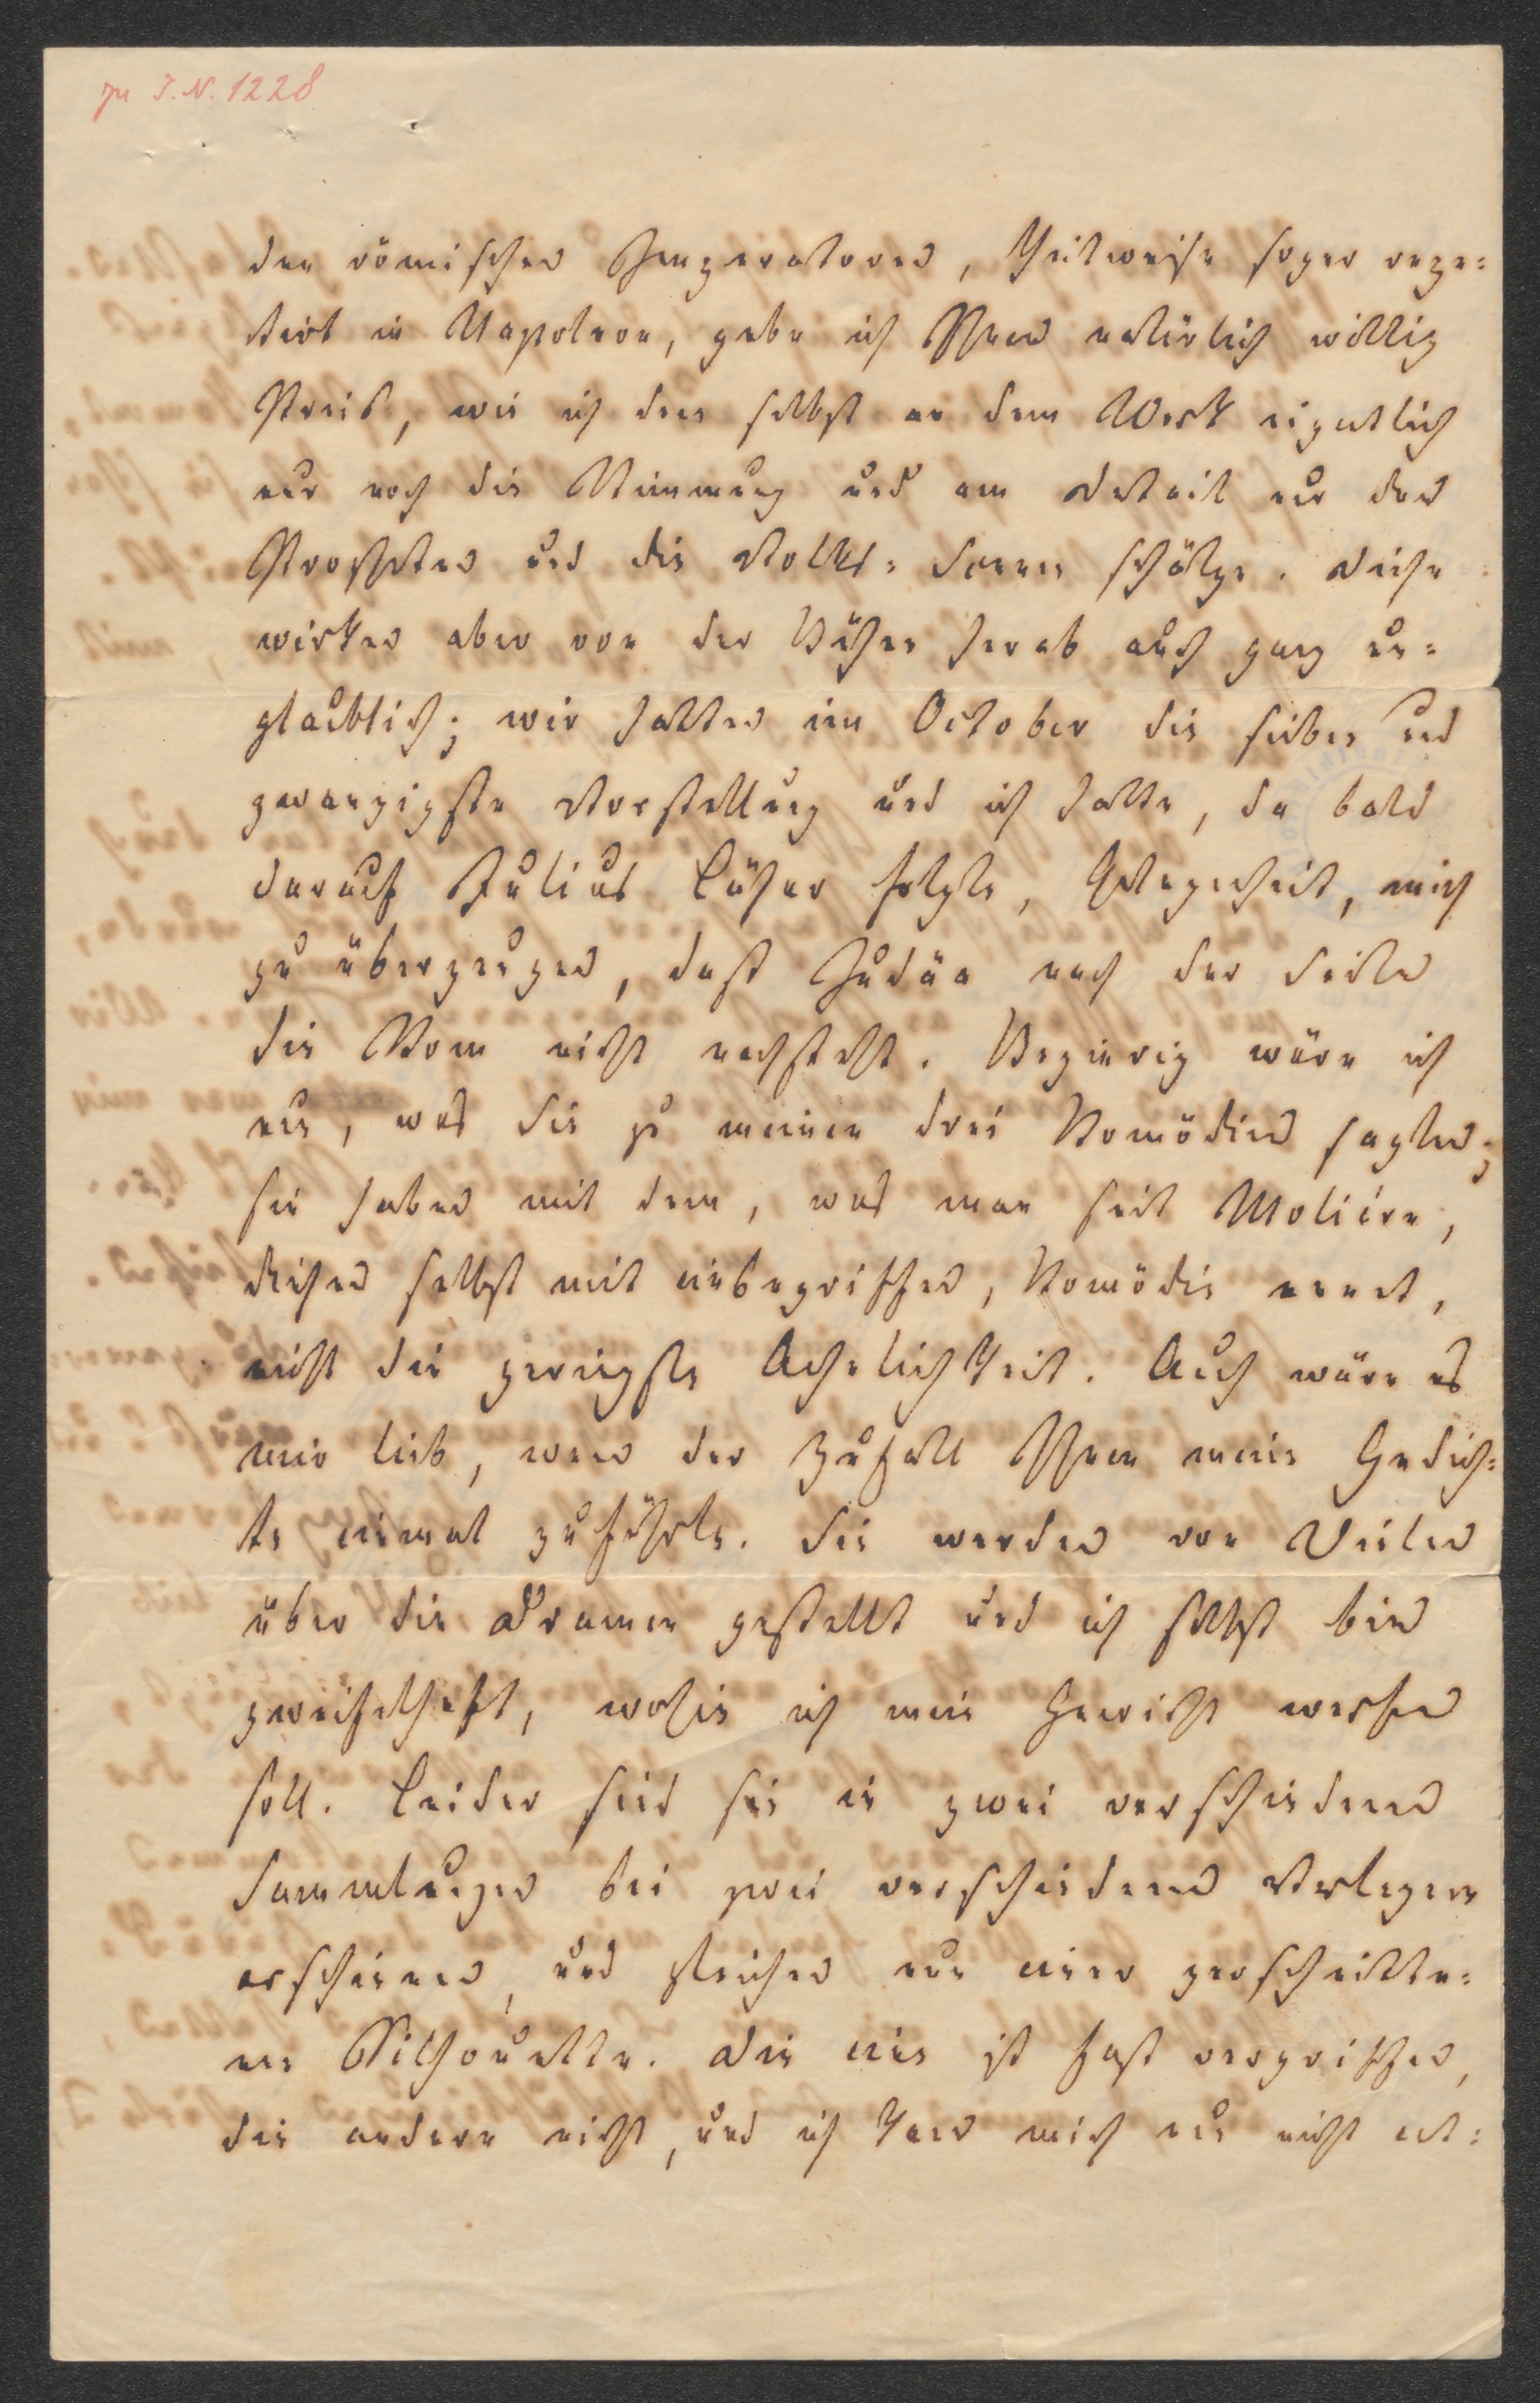 zu I.N. 1228
den römischen Imperatoren, theilweise sogar repe=
tirt in Napoleon, gebe ich Ihnen natürlich willig
Preis, wie ich denn selbst an dem Werk eigentlich
nur noch die Stimmung und am Detail nur den
Propheten und die Volks=Scenen schätze. Diese
wirken aber von der Bühne herab auch ganz un=
glaublich; wir hatten im October die sieben und
zwanzigste Vorstellung und ich hatte, da bald
darauf Julius Cäsar folgte, Gelegenheit, mich
zu überzeugen, daß Judäa nach der Seite
hin Rom nicht nachsteht. Begierig wäre ich
nun, was Sie zu meinen drei Komödien sagten;
sie haben mit dem, was man seit Molière,
diesen selbst mit einbegriffen, Komödie nennt,
nicht die geringste Aehnlichkeit. Auch wäre es
mir lieb, wenn der Zufall Ihnen meine Gedich=
te einmal zuführte. Sie werden von Vielen
über die Dramen gestellt und ich selbst bin
zweifelhaft, wohin ich mein Gewicht werfen
soll. Leider sind sie in zwei verschiedenen
Sammlungen bei zwei verschiedenen Verlegern
erschienen, und gleichen nun einer zerschnitte=
nen Silhouette. Die eine ist fast vergriffen,
die andere nicht, und ich kann mich nun nicht ent=